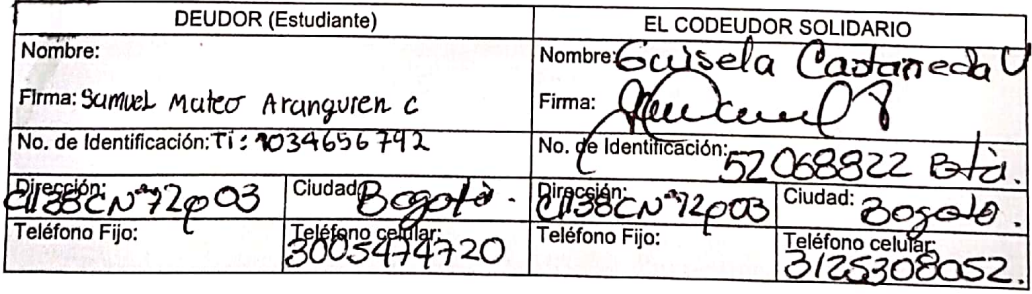 DEUDOR (Estudiante)
EL CODEUDOR SOLIDARIO
Nombre:
Nombre: Guisela Castañeda V
Firma: Samuel Mateo Aranguren C
Firma:
No. de Identificación: Ti: 1034656792
No. de Identificación: 52068822 Btà.
Dirección: Cll38CN°72p03
Ciudad: Bogotà.
Dirección: Cll38CN°72p03
Ciudad: Bogotà.
Teléfono Fijo:
Teléfono celular: 3005474720
Teléfono Fijo:
Teléfono celular: 3125308052.